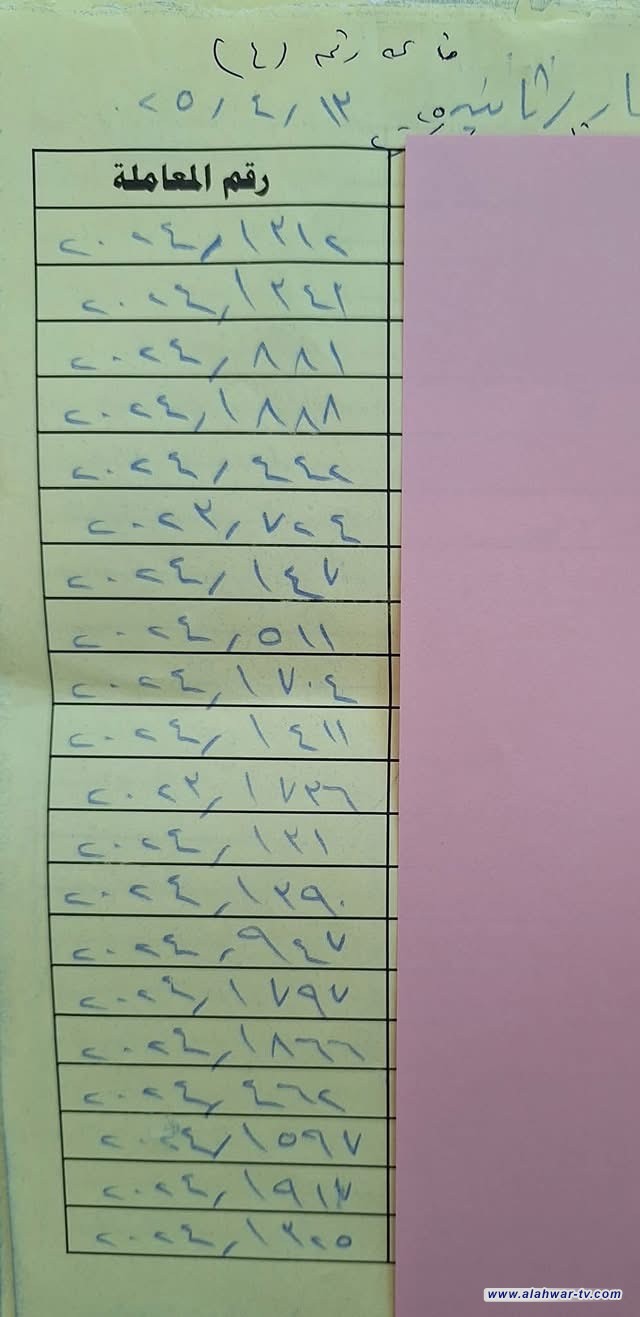 قائمة رقم (٤)
ثانيه ٢٥/٤/١٣
رقم المعاملة
٢٠٢٤/١٣١٢
٢٠٢٤/١٣٤٢
٢٠٢٤/٨٨١
٢٠٢٤/١٨٨٨
٢٠٢٤/٤٤٢
٢٠٢٣/٧٢٤
٢٠٢٤/١٤٧
٢٠٢٤/٥١١
٢٠٢٤/١٧٠٤
٢٠٢٤/١٤١١
٢٠٢٣/١٧٣٦
٢٠٢٤/١٣١
٢٠٢٤/١٣٩٠
٢٠٢٤/٩٤٧
٢٠٢٤/١٧٩٧
٢٠٢٤/١٨٦٦
٢٠٢٤/٤٦٢
٢٠٢٤/١٥٩٧
٢٠٢٤/١٩١٣
٢٠٢٤/١٣٢٥
www.alahwar-tv.com